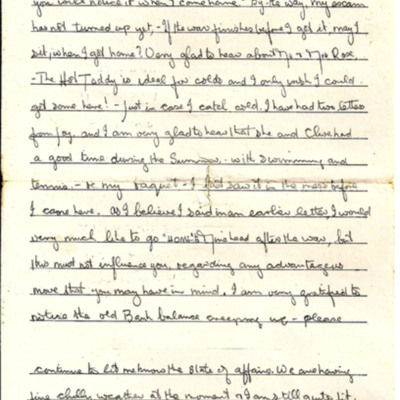 you could notice it when I came home. By the way, my exam
has not turned up yet, - If the war finishes before I get it, may I
sit, when I get home? Very glad to hear about Mr & Mrs Rose.
- The Hot Toddy is ideal for colds and I only wish I could
get some here! - just in case I catch cold. I have had two letters
from Joy, and I am very glad to hear that she and Clive had
a good time during the Summer. - with swimming and
tennis. - Re my raquet - I last saw it in the mess before
I came here. As I believe I said in an earlier letter I would
very much like to go "HOME" to Minehead after the war, but
this must not influence you, regarding any advantageous
move that you may have in mind. I am very gratified to
notice the old Bank balance creeping up - please
continue to let me know the state of affairs. We are having
fine chilly weather at the moment & I am still quite fit.